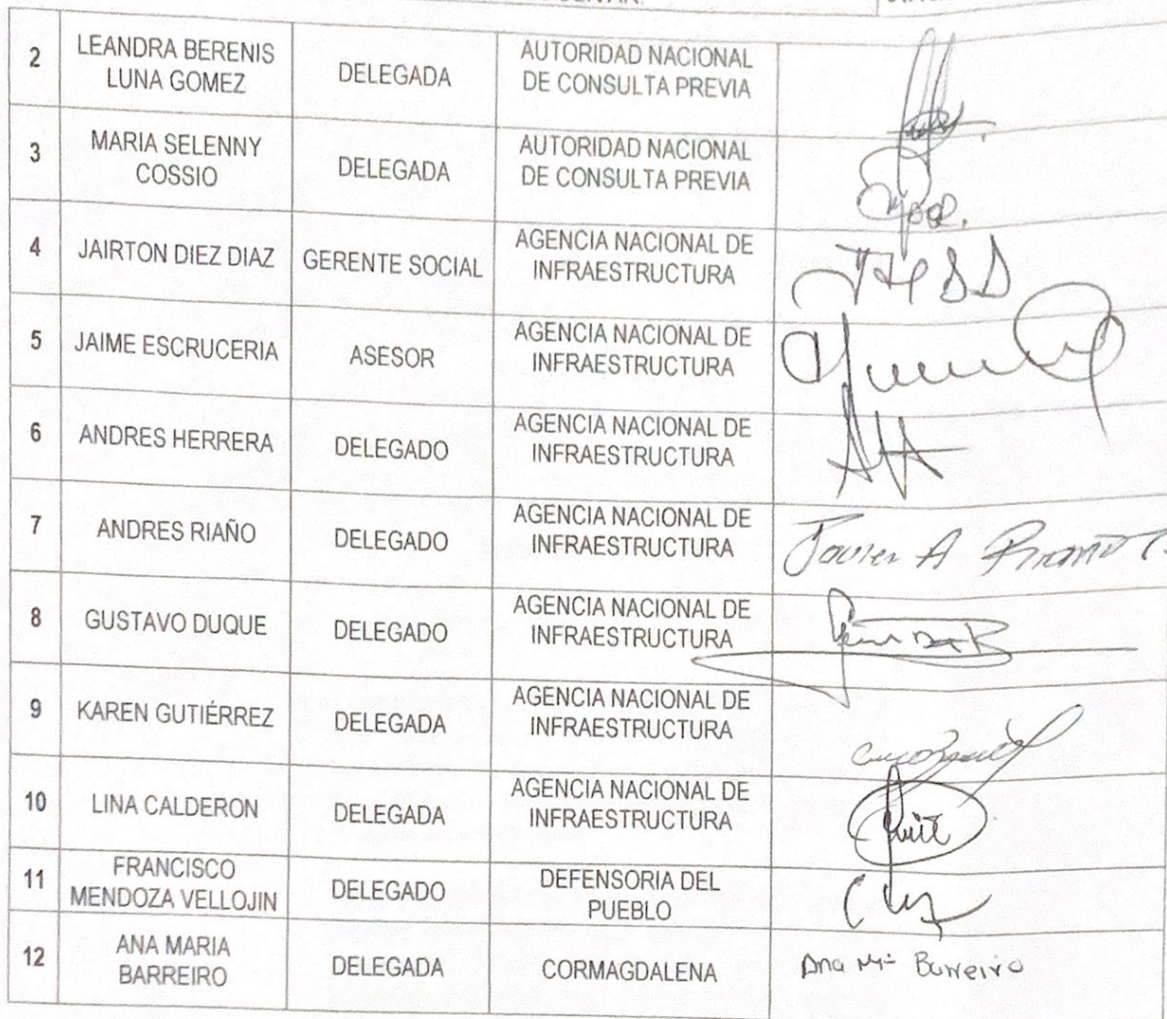 2
LEANDRA BERENIS
LUNA GOMEZ
DELEGADA
AUTORIDAD NACIONAL
DE CONSULTA PREVIA
3
MARIA SELENNY
COSSIO
DELEGADA
AUTORIDAD NACIONAL
DE CONSULTA PREVIA
4
JAIRTON DIEZ DIAZ
GERENTE SOCIAL
AGENCIA NACIONAL DE
INFRAESTRUCTURA
5
JAIME ESCRUCERIA
ASESOR
AGENCIA NACIONAL DE
INFRAESTRUCTURA
6
ANDRES HERRERA
DELEGADO
AGENCIA NACIONAL DE
INFRAESTRUCTURA
7
ANDRES RIAÑO
DELEGADO
AGENCIA NACIONAL DE
INFRAESTRUCTURA
Javier A
8
GUSTAVO DUQUE
DELEGADO
AGENCIA NACIONAL DE
INFRAESTRUCTURA
9
KAREN GUTIÉRREZ
DELEGADA
AGENCIA NACIONAL DE
INFRAESTRUCTURA
10
LINA CALDERON
DELEGADA
AGENCIA NACIONAL DE
INFRAESTRUCTURA
11
FRANCISCO
MENDOZA VELLOJIN
DELEGADO
DEFENSORIA DEL
PUEBLO
12
ANA MARIA
BARREIRO
DELEGADA
CORMAGDALENA
Ana Mª Barreiro